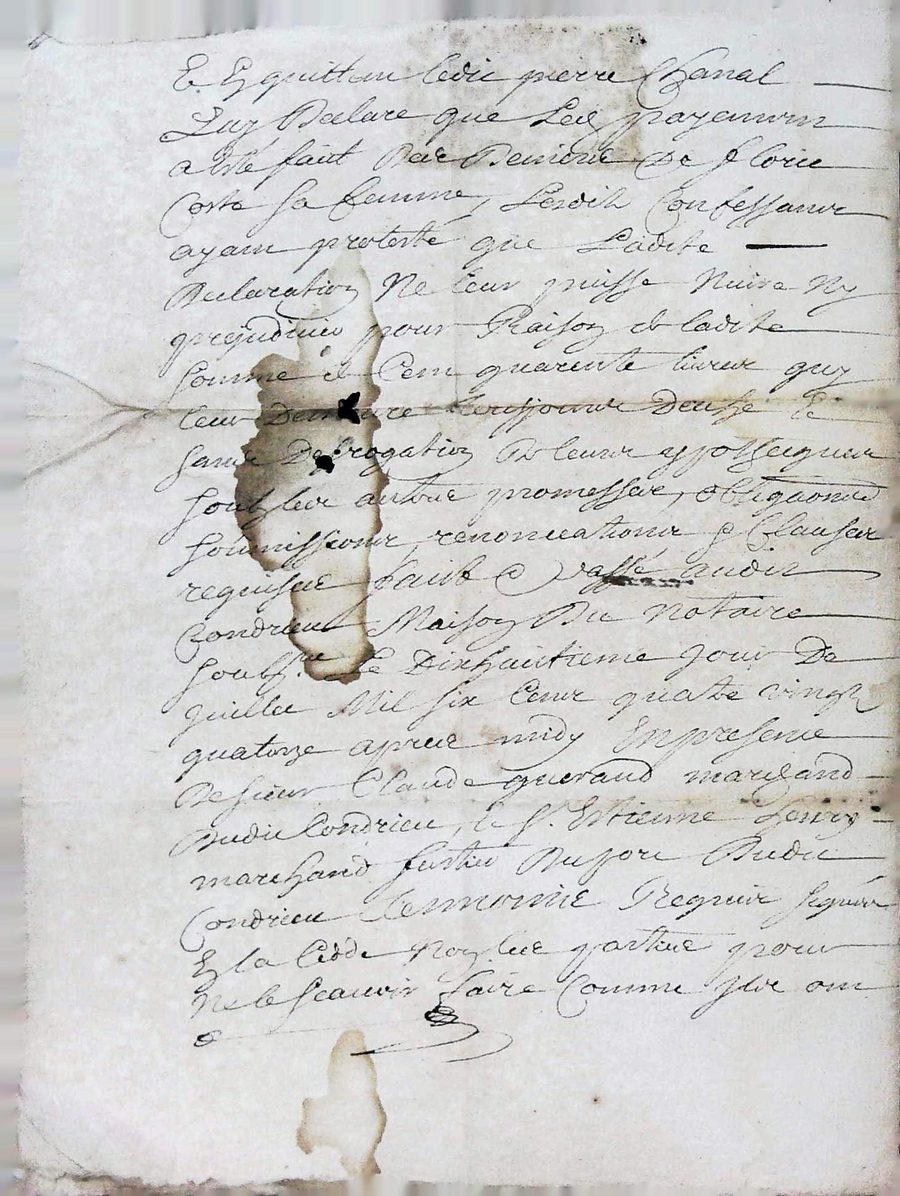 Et En quittan ledit pierre Chanal
Luy Declare que Led payement
a esté faict Des Deniers De florie
Coste sa femme, Lesdits Confessants
ayant protesté que Ladite
Declaration Ne leur puisse Nuire Ny
prejudicier pour Raison de ladite
somme de Cent quarente livres quy
leur Demeure tousjours Deuhe
sans Desrogation De leurs ypotheques
soubz leur autre promesses, obligaons
soumissions, renonciations & Clauses
requises faict & passé audit
Condrieu Maison Du Notaire
soubs.ne Le Dixhuitieme Jour De
Juillet Mil six Cents quatre vingt
quatorze apres midy En presence
De sieur Claude guerand marchand
Dudit Condrieu, le Sr. Estienne
marchand Du port Dudit
Condrieu temoins Requis signés
Et la Cedde Non les parties pour
Ne le scavoir faire Comme Ils ont